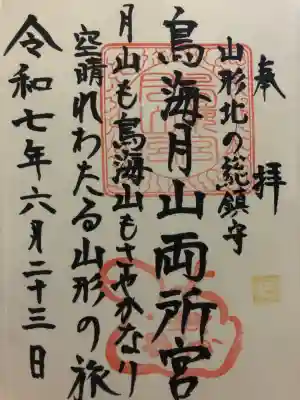 奉拝
山形北の総鎮守
鳥海月山両所宮
月山も鳥海山もさやかなり
空晴れわたる山形の旅
令和七年六月二十三日